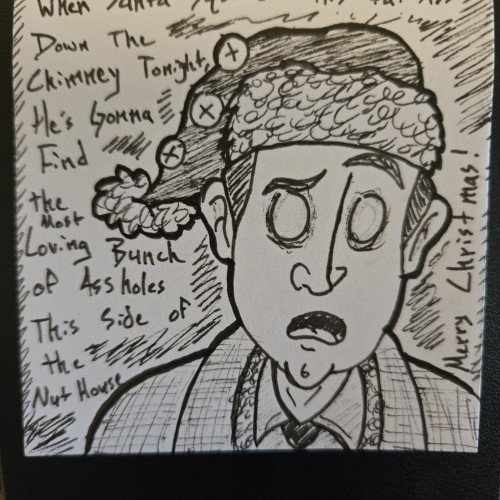 When Santa
Down The
Chimney Tonight,
He's Gonna
Find
the
Most
Loving Bunch
of Assholes
This Side of
the
Nut House
Merry Christmas!